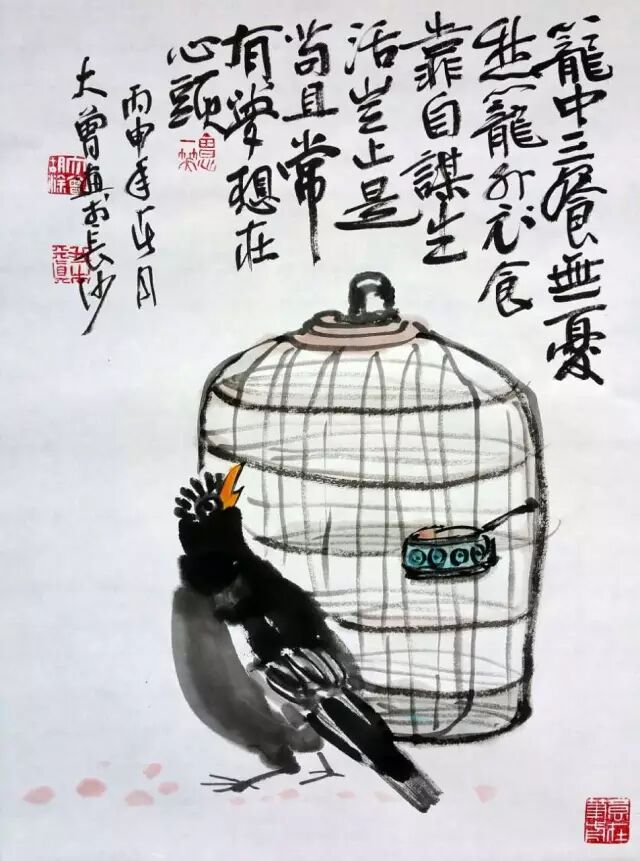 籠中三餐無憂
愁籠外衣食
靠自謀生
活豈止是
苟且常
有夢想在
心頭
丙申年正月
大曾畫於長沙